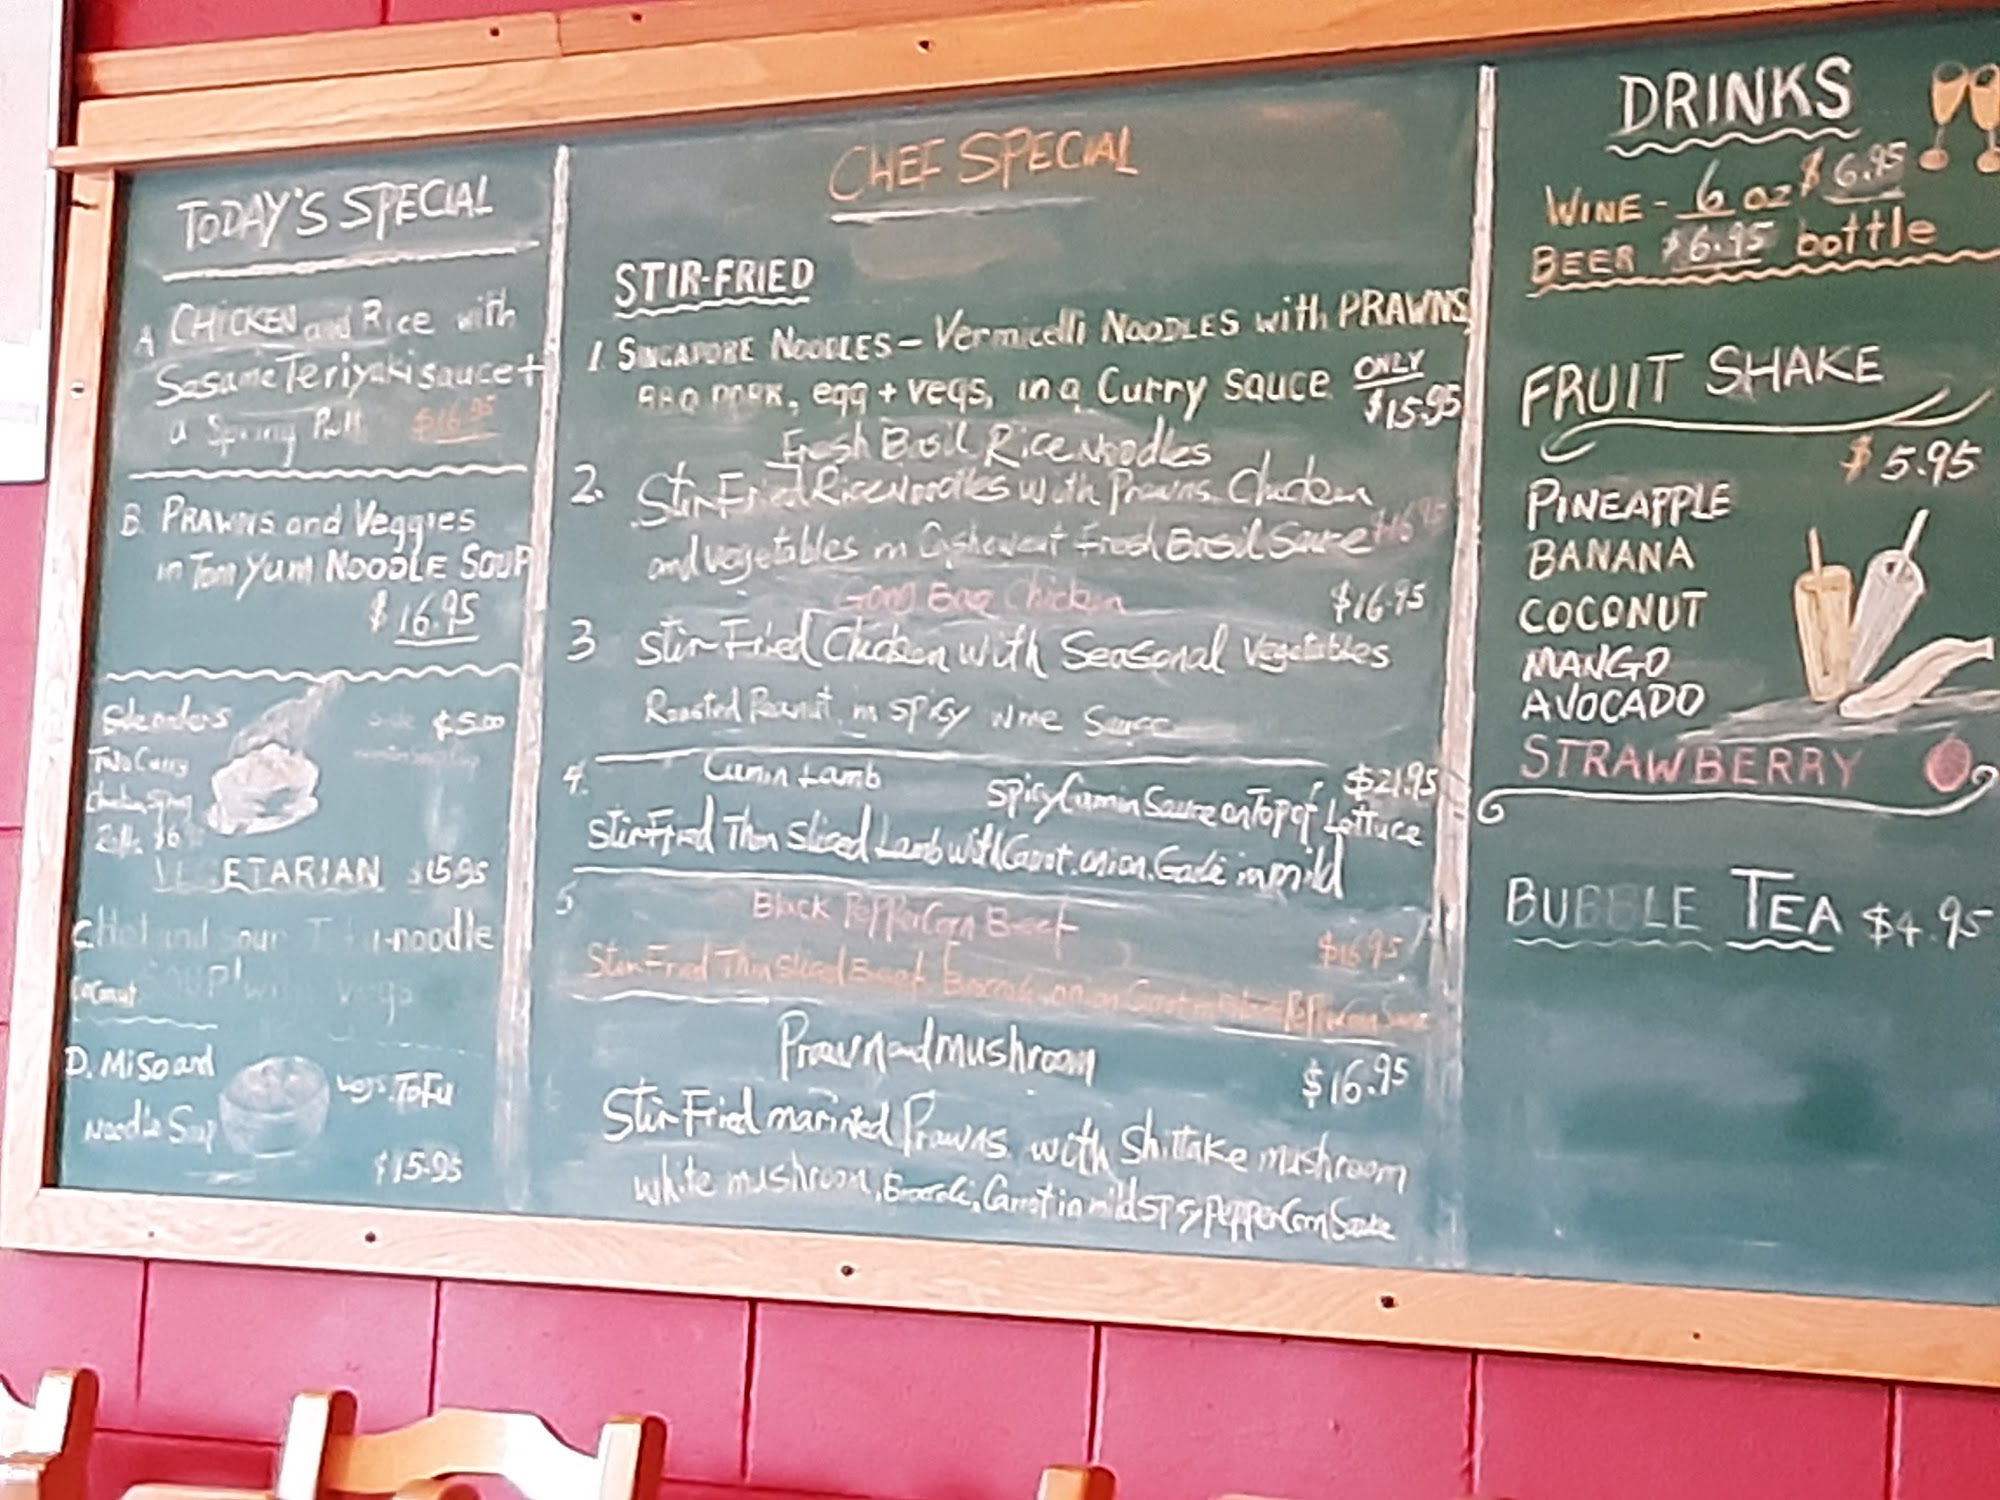 TODAY'S SPECIAL
A CHICKEN and Rice with
Sasame Teriyaki sauce +
a Spring Roll $16.95
B. PRAWNS and Veggies
in Tom Yum NOODLE SOUP
$16.95
side $5.00
Two Curry
Chicken Spring
Rolls $6
VEGETARIAN $15.95
C. Hot and sour noodle
SOUP vegs
Coconut
D. MiSo and
vegs. ToFu
Noodle Soup
$15.95
CHEF SPECIAL
STIR-FRIED
1. SINGAPORE NOODLES - Vermicelli NOODLES with PRAWNS,
BBQ PORK, egg + vegs, in a Curry Sauce ONLY $15.95
Fresh Basil Rice Noodles
2. Stir Fried Rice Noodles with Prawns. Chicken
and vegetables in Fresh Basil Sauce $16.95
Gong Bao Chicken $16.95
3 Stir Fried Chicken with Seasonal Vegetables
Roasted Peanut in spicy wine Sauce
4. Cumin Lamb $21.95
Spicy Cumin Sauce on Top of Lottuce
Stir Fried Thin Sliced Lamb with Carrot. onion. Garlic in mild
5 Black PepperCorn Beef
$16.95
Stir Fried Thin sliced Beef onion Carrot PepperCorn Sauce
Prawn and mushroom
$16.95
Stir Fried marinted Prawns with Shittake mushroom
white mushroom, Broccoli, Carrot in mild Spicy PepperCorn Sauce
DRINKS
WINE - 6 oz $6.95
BEER $6.95 bottle
FRUIT SHAKE
$5.95
PINEAPPLE
BANANA
COCONUT
MANGO
AVOCADO
STRAWBERRY
BUBBLE TEA $4.95